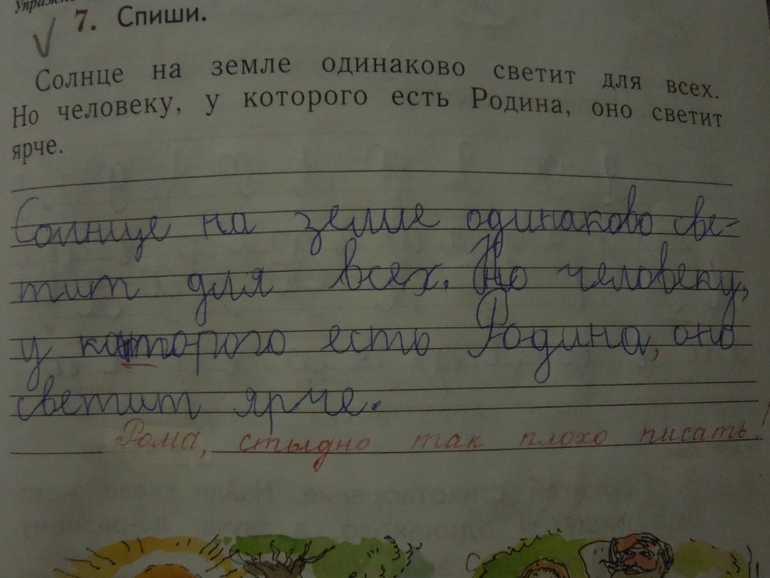 7. Спиши.
Солнце на земле одинаково светит для всех.
Но человеку, у которого есть Родина, оно светит
ярче.
Солнце на земле одинаково све-
тит для всех. Но человеку,
у которого есть Родина, оно
светит ярче.
Рома, стыдно так плохо писать!